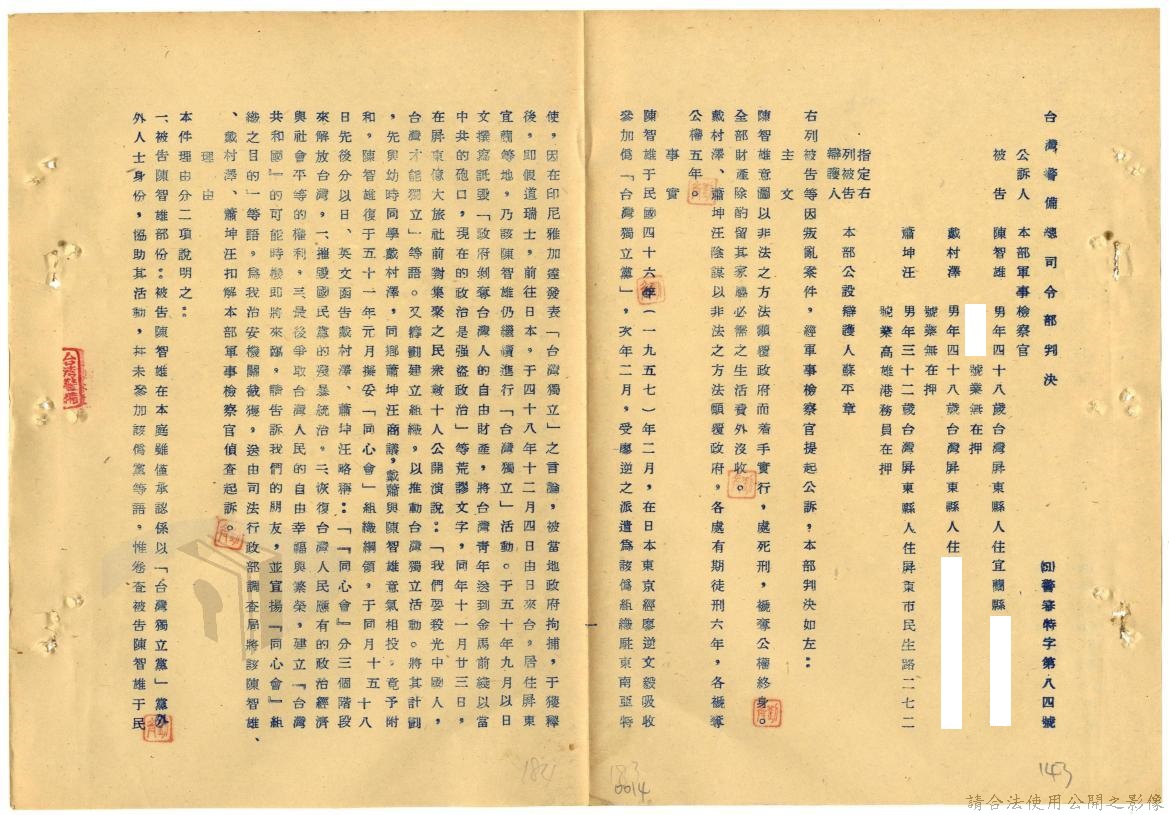 台灣警備總司令部判決
(51)警審特字第八四號
公訴人 本部軍事檢察官
被告 陳智雄 男年四十八歲台灣屏東縣人住宜蘭縣
號業無在押
戴村澤 男年四十八歲台灣屏東縣人住
號業無在押
蕭坤汪 男年三十二歲台灣屏東縣人住屏東市民生路二七二
號業高雄港務員在押
指定右
列被告
辯護人 本部公設辯護人蘇平章
右列被告等因叛亂案件,經軍事檢察官提起公訴,本部判決如左:
主文
陳智雄意圖以非法之方法顛覆政府而着手實行,處死刑,褫奪公權終身。
全部財產除酌留其家屬必需之生活費外沒收。
戴村澤、蕭坤汪陰謀以非法之方法顛覆政府,各處有期徒刑六年,各褫奪
公權五年。
事實
陳智雄于民國四十六年(一九五七)年二月,在日本東京經廖逆文毅吸收
參加僞「台灣獨立黨」,次年二月,受廖逆之派遣爲該僞組織駐東南亞特
使,因在印尼雅加達發表「台灣獨立」之言論,被當地政府拘捕,于獲釋
後,即假道瑞士,前往日本,于四十八年十二月四日由日來台,居住屏東
宜蘭等地,乃該陳智雄仍繼續進行「台灣獨立」活動。于五十年九月以日
文撰寫詆毀「政府剝奪台灣人的自由財產,將台灣青年送到金馬前綫以當
中共的砲口,現在的政治是强盜政治」等荒謬文字,同年十一月廿三日,
在屏東億大旅社前對集衆之民衆數十人公開演說:「我們要殺光中國人,
台灣才能獨立」等語。又籌劃建立組織,以推動台灣獨立活動。將其計劃
,先與幼時同學戴村澤,同鄉蕭坤汪商議,戴蕭與陳智雄意氣相投,竟予附
和,陳智雄復于五十一年元月擬妥「同心會」組織綱領,于同月十五 十八
日先後分以日、英文函告戴村澤、蕭坤汪略稱:「『同心會』分三個階段
來解放台灣,一、摧毀國民黨的殘暴統治,二、恢復台灣人民應有的政治經濟
與社會平等的權利,三、最後爭取台灣人民的自由幸福與繁榮,建立『台灣
共和國』的可能時機即將來臨,請告訴我們的朋友,並宣揚『同心會』組
織之目的」等語,爲我治安機關截獲,送由司法行政部調查局將該陳智雄、
、戴村澤、蕭坤汪扣解本部軍事檢察官偵查起訴。
理由
本件理由分二項說明之:
一、被告陳智雄部份:被告陳智雄在本庭雖僅承認係以「台灣獨立黨」黨外
外人士身份,協助其活動,並未參加該僞黨等語。惟卷查被告陳智雄于民
一
台灣警備
143
183
0014
182
請合法使用公開之影像